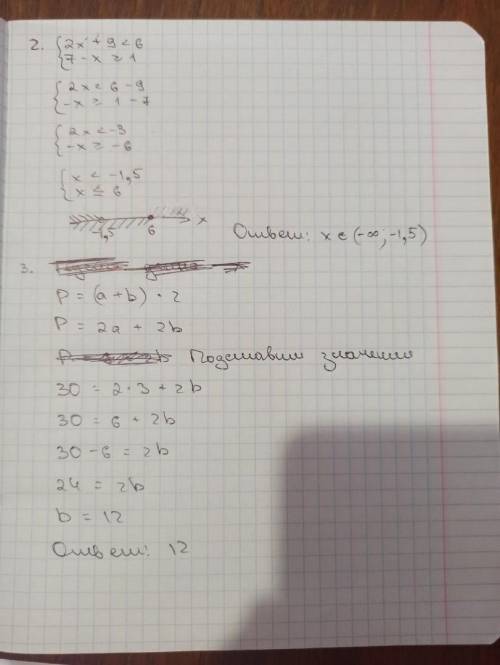 2. { 2x + 9 < 6
7 - x ≥ 1
{ 2x < 6 - 9
-x ≥ 1 - 7
{ 2x < -3
-x ≥ -6
{ x < -1,5
x ≤ 6
-1,5 6 x
Ответ: x ∈ (-∞; -1,5)
3.
P = (a + b) · 2
P = 2a + 2b
Подставим значения
30 = 2·3 + 2b
30 = 6 + 2b
30 - 6 = 2b
24 = 2b
b = 12
Ответ: 12